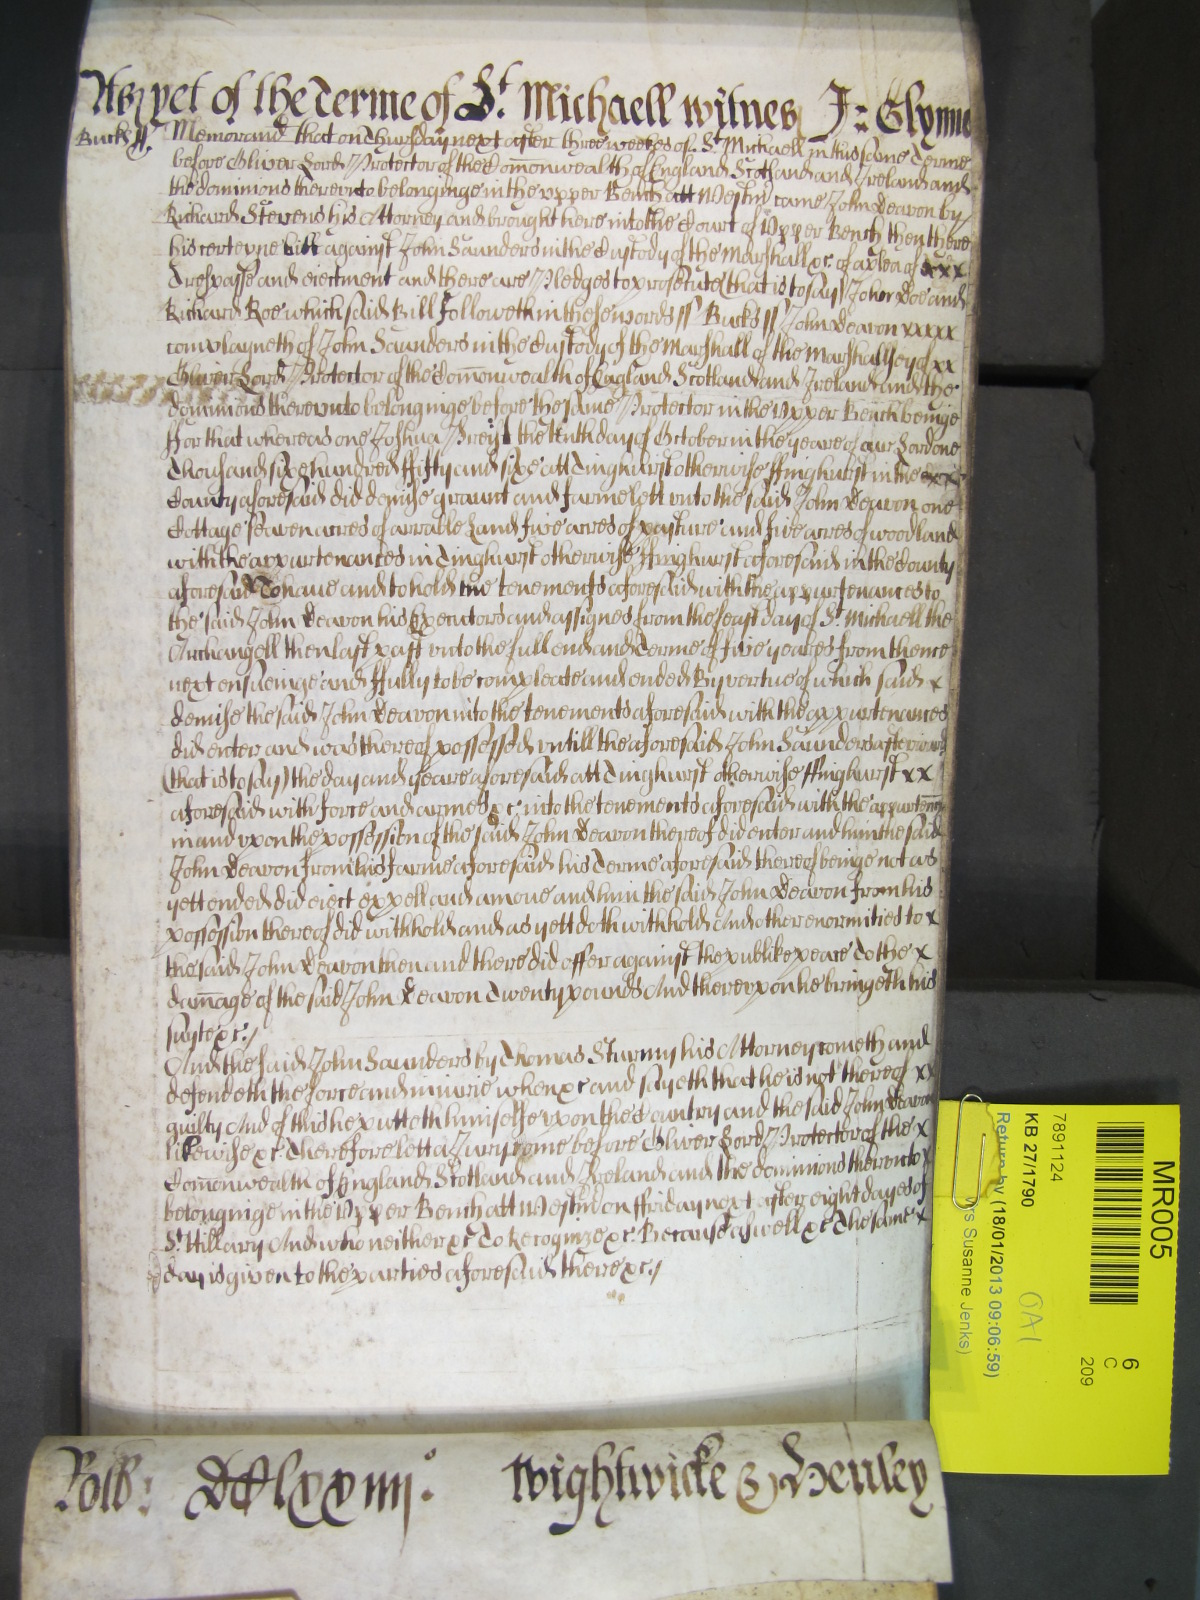 As yet of the Terme of St. Michaell witnes J: Glynne
Bucks ss Memorand that on Thursday next after three weekes of St Michaell in this same Terme
before Oliver Lord Protector of the Comonwealth of England Scotland and Ireland and
the dominions therevnto belonginge in the vpper Bench att Westmr came John Deavon by
Richard Stevens his Attorney and brought here into the Court of Vpper Bench then there
his certeyne bill against John Saunders in the Custody of the Marshall &c of a plea of xxx
Trespasse and eiectment and there are Pledges to prosecute (that is to say) John Doe and
Richard Roe which said Bill followeth in these words ss Bucks ss John Deavon xxxxx
complayneth of John Saunders in the Custody of the Marshall of the Marshallsey of xx
Oliver Lord Protector of the Comonwealth of England Scotland and Ireland and the
dominions therevnto belonginge before the same Protector in the Vpper Bench beinge
ffor that whereas one Joshua the tenth day of October in the yeare of our Lord one
Thousand sixe hundred ffifty and sixe att Tinghurst otherwise ffinghurst in the xxx
County aforesaid did demise graunt and farme lett vnto the said John Deavon one
Cottage seaven acres of arrable Land five acres of pasture and five acres of woodland
with the appurtenances in Tinghurst otherwise ffinghurst aforesaid in the County
aforesaid To haue and to hold the tenements aforesaid with the appurtenances to
the said John Deavon his Executors and assignes from the feast day of St. Michaell the
Archangell then last past vnto the full end and Terme of five yeares from thence
next ensueinge and ffully to be compleate and ended By vertue of which said x
demise the said John Deavon into the tenements aforesaid with the appurtenances
did enter and was thereof possessed vntill the aforesaid John Saunders afterward
(that is to say) the day and yeare aforesaid att Tinghurst otherwise ffinghurst xx
aforesaid with force and armes &c into the tenements aforesaid with the appurtenn
in and vpon the possession of the said John Deavon thereof did enter and him the said
John Deavon from his farme aforesaid his Terme aforesaid thereof beinge not as
yett ended did eiect expell and amoue and him the said John Deavon from his
possession thereof did withhold and as yett doth withhold And other enormities to x
the said John Deavon then and there did offer against the publike peace To the x
damage of the said John Deavon Twenty pounds And therevpon he bringeth his
suyte &c./
And the said John Saunders by Thomas Sturmy his Attorney cometh and
defendeth the force and iniurie when &c and sayeth that he is not thereof xx
guilty And of this he putteth himselfe vpon the Cuntry and the said John Deavon
likewise &c Therefore lett a Jury come before Oliver Lord Protector of the x
Comonwealth of England Scotland and Ireland and the dominions therevnto x
belonginge in the Vpper Bench att Westmr on ffriday next after eight dayes of
St Hillary And who neither &c To Recognize &c Because aswell &c The same x
day is given to the parties aforesaid there &c./
Rolls: DCClxxiiij° Wightwicke & Henley
MR005
7891124
KB 27/1790
Return by (18/01/2013 09:06:59)
Susanne Jenks)
OA1
6
C
209